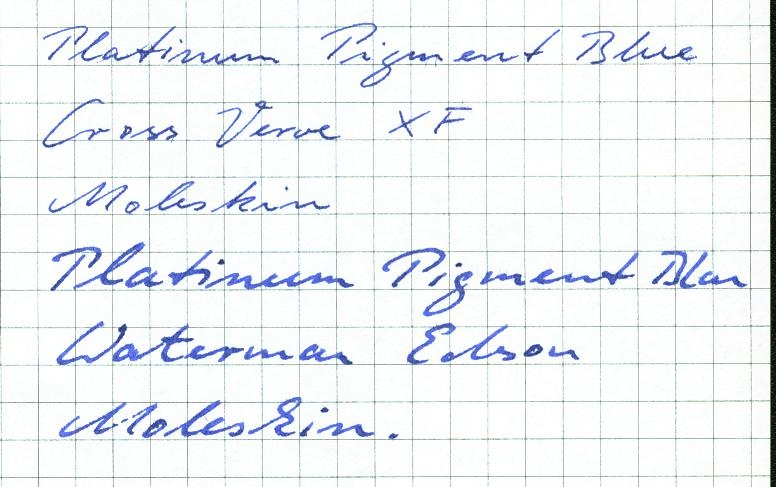 Platinum Pigment Blue
Cross Verve XF
Moleskin
Platinum Pigment Blau
Waterman Edson
Moleskin.